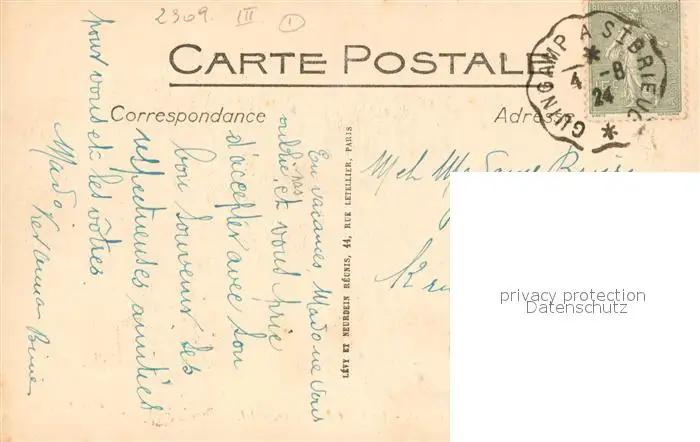 2309. III 1
CARTE POSTALE
Correspondance
Adresse
GUINGAMP A ST BRIEUC
4 -8
24
En vacances Mado ne vous
oublie pas et vous prie
d'accepter avec son
bon souvenir ses
respectueuses amitiés
pour vous et les vôtres.
Mado
LÉVY ET NEURDEIN RÉUNIS, 44, RUE LETELLIER, PARIS
Madame
privacy protection
Datenschutz